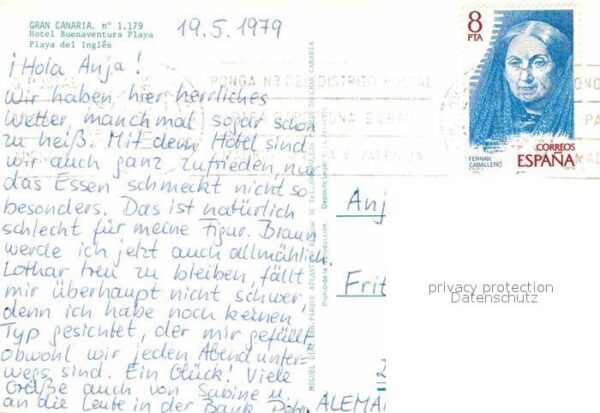 GRAN CANARIA. nº 1.179
Hotel Buenaventura Playa
Playa del Inglés
19.5.1979
¡Hola Anja!
Wir haben hier herrliches
Wetter, manchmal sogar schon
zu heiß. Mit dem Hotel sind
wir auch ganz zufrieden, nur
das Essen schmeckt nicht so
besonders. Das ist natürlich
schlecht für meine Figur. Braun
werde ich jetzt auch allmählich.
Lothar treu zu bleiben, fällt
mir überhaupt nicht schwer,
denn ich habe noch keinen
Typ gesichtet, der mir gefällt,
obwohl wir jeden Abend unter-
wegs sind. Ein Glück! Viele
Grüße auch von Sabine u.
an die Leute in der Bank
PONGA Nº DEL DISTRITO POSTAL
BILBAO
Y VALENCIA
8
PTA
CORREOS
ESPAÑA
FERNAN
CABALLERO
Anj
Frit
ALEMA
privacy protection
Datenschutz